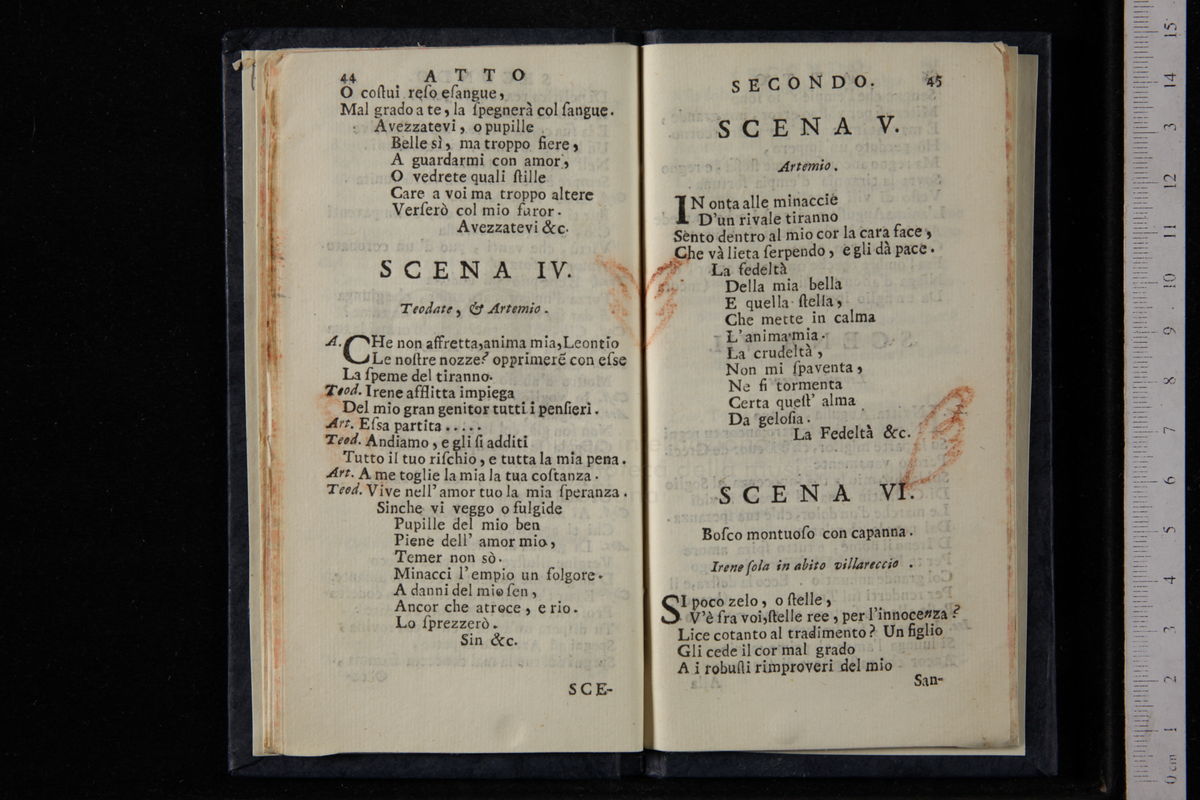 44 ATTO
O coſtui reſo eſangue,
Mal grado a te, la ſpegnerà col ſangue.
Avezzatevi, o pupille
Belle sì, ma troppo fiere,
A guardarmi con amor,
O vedrete quali ſtille
Care a voi ma troppo altere
Verſerò col mio furor.
Avezzatevi &c.
SCENA IV.
Teodate, & Artemio.
A. CHe non affretta, anima mia, Leontio
Le noſtre nozze? opprimerẽ con eſse
La ſpeme del tiranno.
Teod. Irene afflitta impiega
Del mio gran genitor tutti i penſieri.
Art. Eſsa partita.....
Teod. Andiamo, e gli ſi additi
Tutto il tuo riſchio, e tutta la mia pena.
Art. A me toglie la mia la tua coſtanza.
Teod. Vive nell' amor tuo la mia ſperanza.
Sinche vi veggo o fulgide
Pupille del mio ben
Piene dell' amor mio,
Temer non sò.
Minacci l'empio un folgore.
A danni del mio ſen,
Ancor che atroce, e rio.
Lo ſprezzerò.
Sin &c.
SCE-
SECONDO. 45
SCENA V.
Artemio.
IN onta alle minaccie
D'un rivale tiranno
Sento dentro al mio cor la cara face,
Che và lieta ſerpendo, e gli dà pace.
La fedeltà
Della mia bella
E quella ſtella,
Che mette in calma
L'anima mia.
La crudeltà,
Non mi ſpaventa,
Ne ſi tormenta
Certa queſt' alma
Da geloſia.
La Fedeltà &c.
SCENA VI.
Boſco montuoſo con capanna.
Irene ſola in abito villareccio.
SI poco zelo, o ſtelle,
V'è fra voi, ſtelle ree, per l'innocenza?
Lice cotanto al tradimento? Un figlio
Gli cede il cor mal grado
A i robuſti rimproveri del mio
San-
0 cm 1 2 3 4 5 6 7 8 9 10 11 12 13 14 15